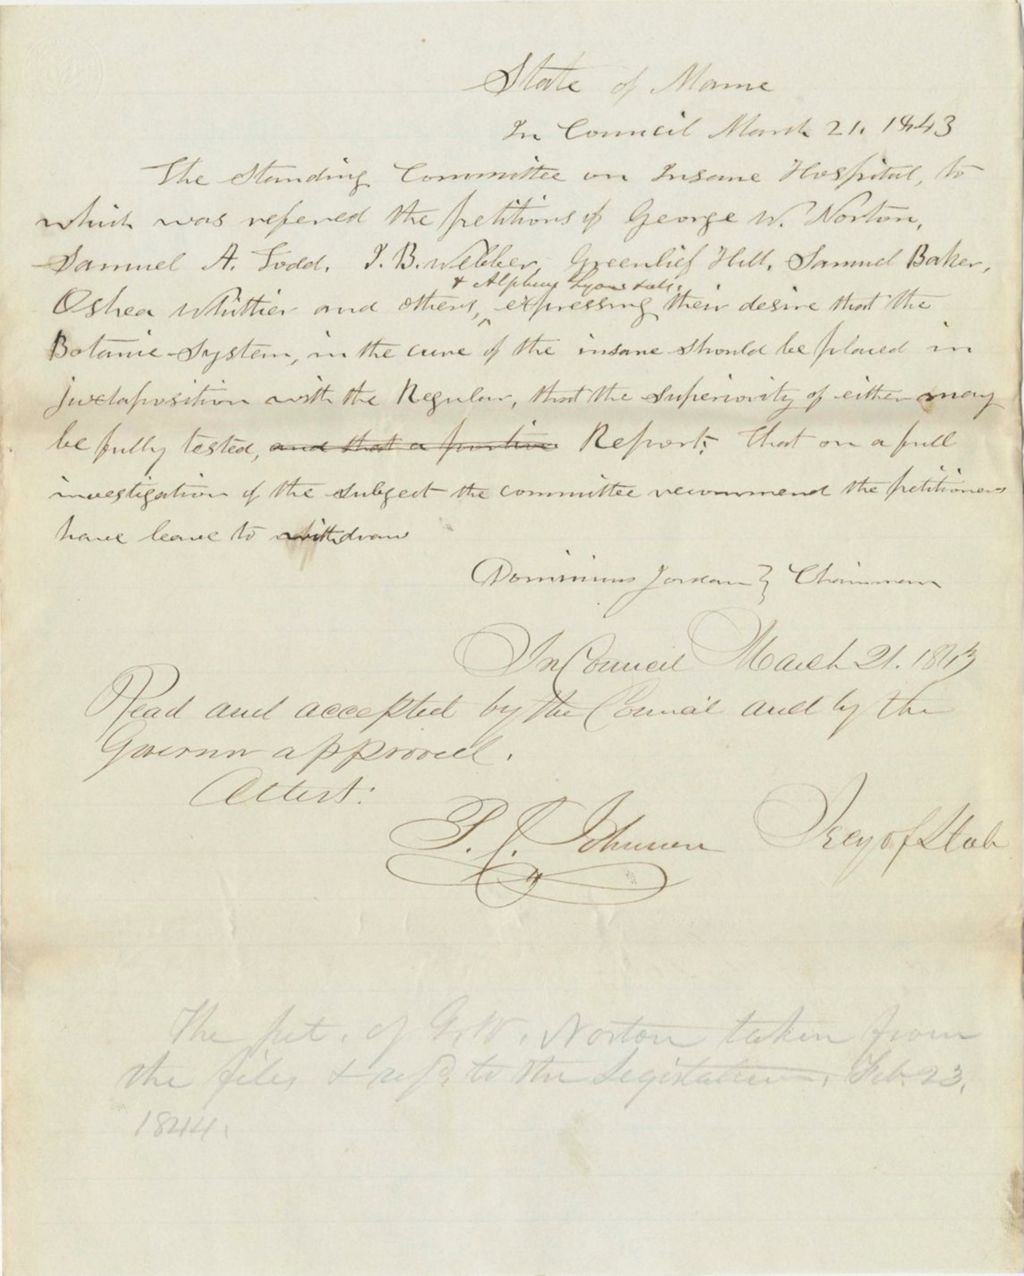 State of Maine
In Council March 21, 1843
The Standing Committee on Insane Hospital, to
which was refered the petitions of George W. Norton,
Samuel A. Todd, I. B. Webber, Greenlief Hill, Samuel Baker,
& Alpheus Lyon & als.
Oshea Whittier and others, expressing their desire that the
Botanic System, in the cure of the insane should be placed in
juxtaposition with the Regular, that the superiority of either may
be fully tested, and that a portion Report; That on a full
investigation of the subject the committee recommend the petitioners
have leave to withdraw
Dominicus Jordan } Chairman
In Council March 21. 1843
Read and accepted by the Council and by the
Governor approved.
Attest:
P. C. Johnson Secy of State
The pet. of G. W. Norton taken from
the files & ref'd to the Legislature, Feb. 23,
1844.